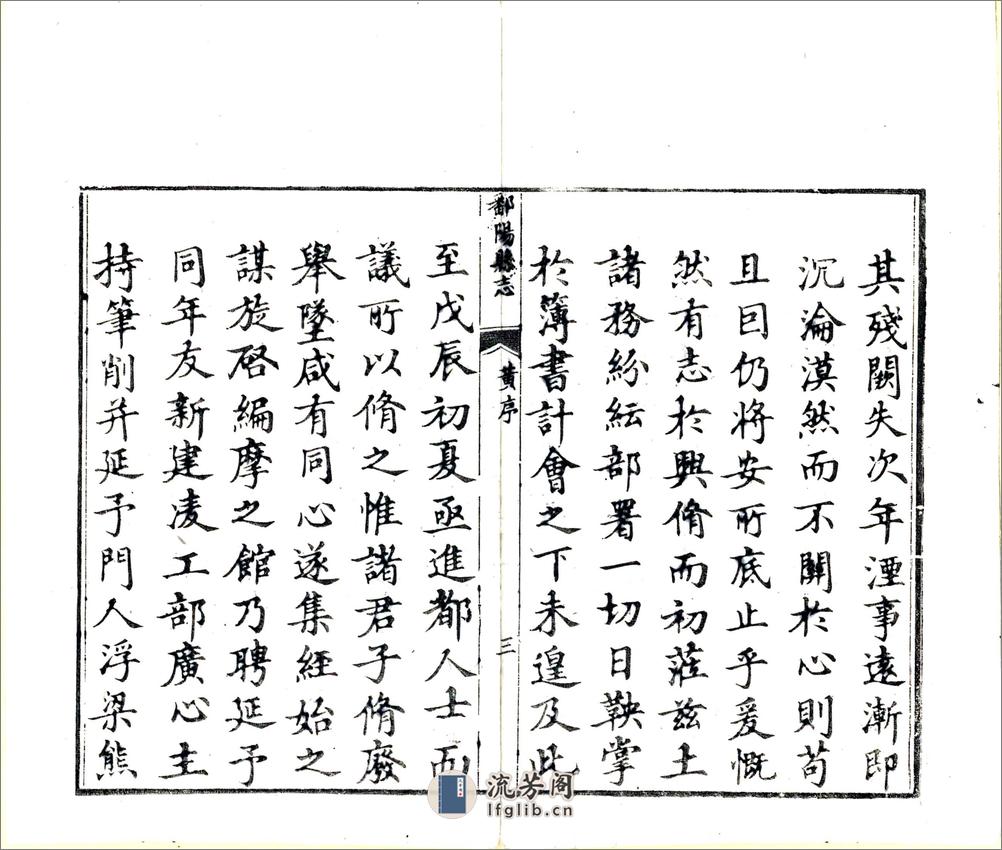 其殘闕失次年湮事遠漸即
沉淪漠然而不關於心則苟
且因仍將安所底止乎爰慨
然有志於興脩而初蒞茲土
諸務紛紜部署一切日鞅掌
於簿書計會之下未遑及此
鄱陽縣志
黃序
三
至戊辰初夏亟進都人士而
議所以脩之惟諸君子脩廢
舉墜咸有同心遂集經始之
謀旋啓編摩之館乃聘延予
同年友新建凌工部廣心主
持筆削并延予門人浮梁熊
流芳阁
lfglib.cn